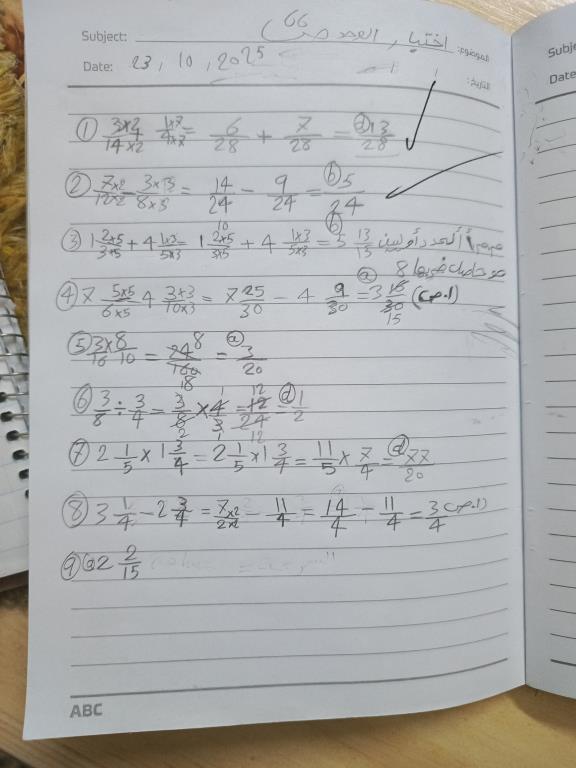 Subject: اختبار العددي 66 الموضوع:
Date: 23, 10, 2025 التاريخ:
① 3×2/14×2 1×7/4×7 = 6/28 + 7/28 = ⓓ 13/28
② 7×2/12×2 - 3×3/8×3 = 14/24 - 9/24 = ⓑ 5/24
③ 1 2×5/3×5 + 4 1×3/5×3 = 1 10 2×5/3×5 + 4 1×3/5×3 = ⓑ 5 13/15
④ 7 5×5/6×5 4 3×3/10×3 = 7 25/30 - 4 9/30 = ⓐ 3 16/30 15
⑤ 3×8/16 10 = 24 8/160 = ⓐ 3/20
⑥ 3/8 ÷ 3/4 = 3/8 × 4/3 = 12/24 = ⓓ 1/2
⑦ 2 1/5 × 1 3/4 = 2 1/5 × 1 3/4 = 11/5 × 7/4 = ⓓ 77/20
⑧ 3 1/4 - 2 3/4 = 7×2/2×2 - 11/4 = 14/4 - 11/4 = 3/4
⑨ ⓐ 2 2/15
ABC
Subje
Date: